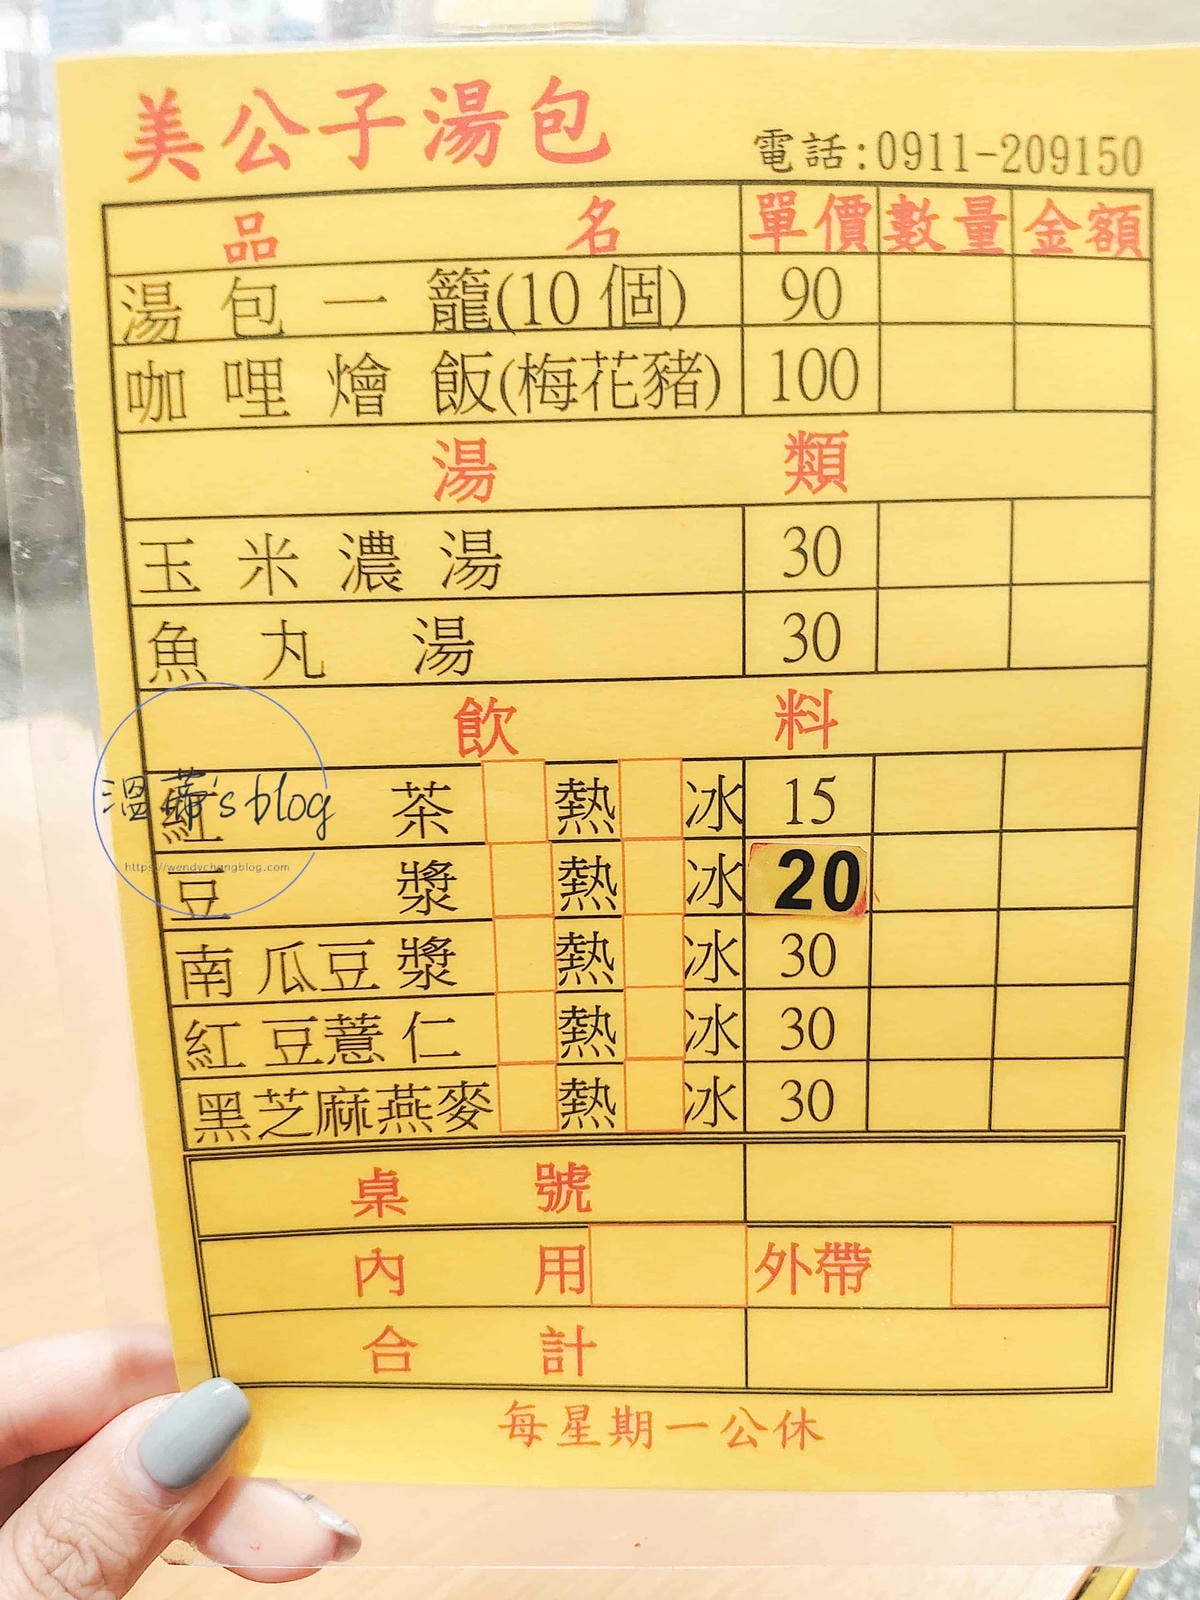 美公子湯包
電話:0911-209150
品名 單價 數量 金額
湯包一籠(10個) 90
咖哩燴飯(梅花豬) 100
湯類
玉米濃湯 30
魚丸湯 30
飲料
紅茶 熱 冰 15
溫蒂's blog
https://wendychangblog.com
豆漿 熱 冰 20
南瓜豆漿 熱 冰 30
紅豆薏仁 熱 冰 30
黑芝麻燕麥 熱 冰 30
桌號
內用 外帶
合計
每星期一公休